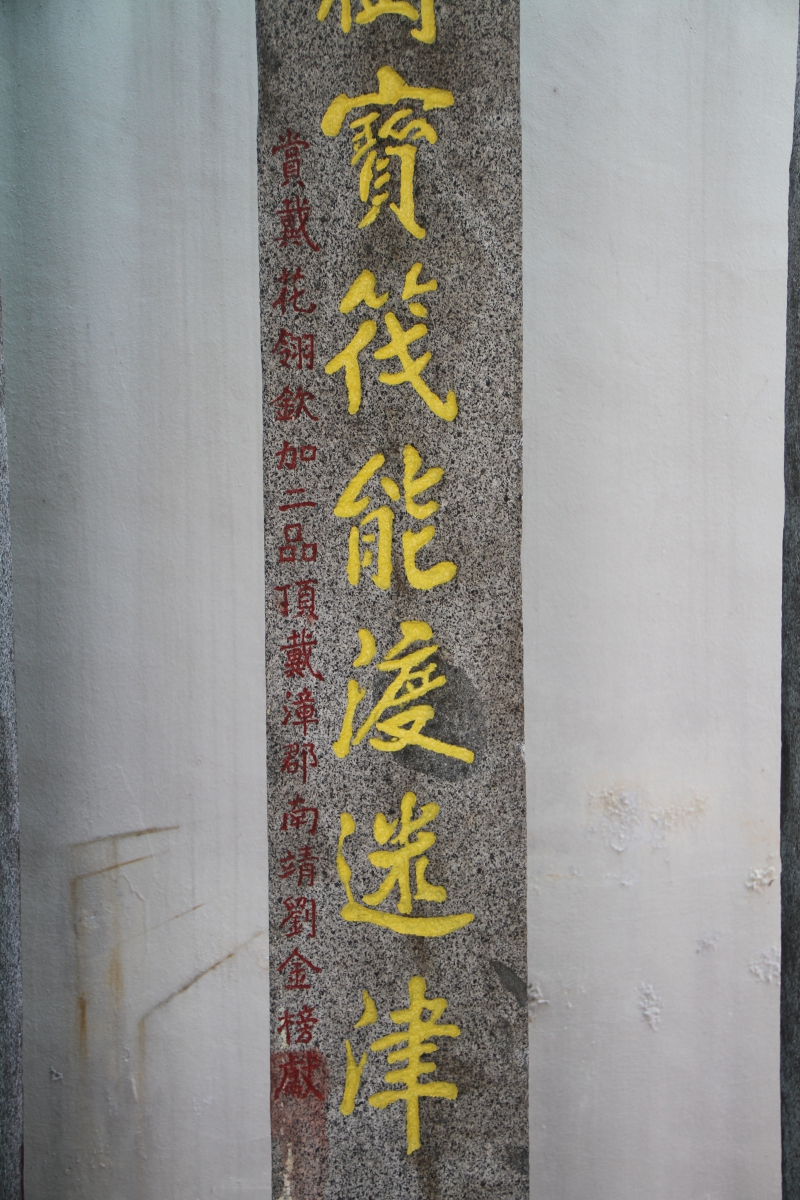 寶筏能渡迷津
賞戴花翎欽加二品頂戴漳郡南靖劉金榜獻